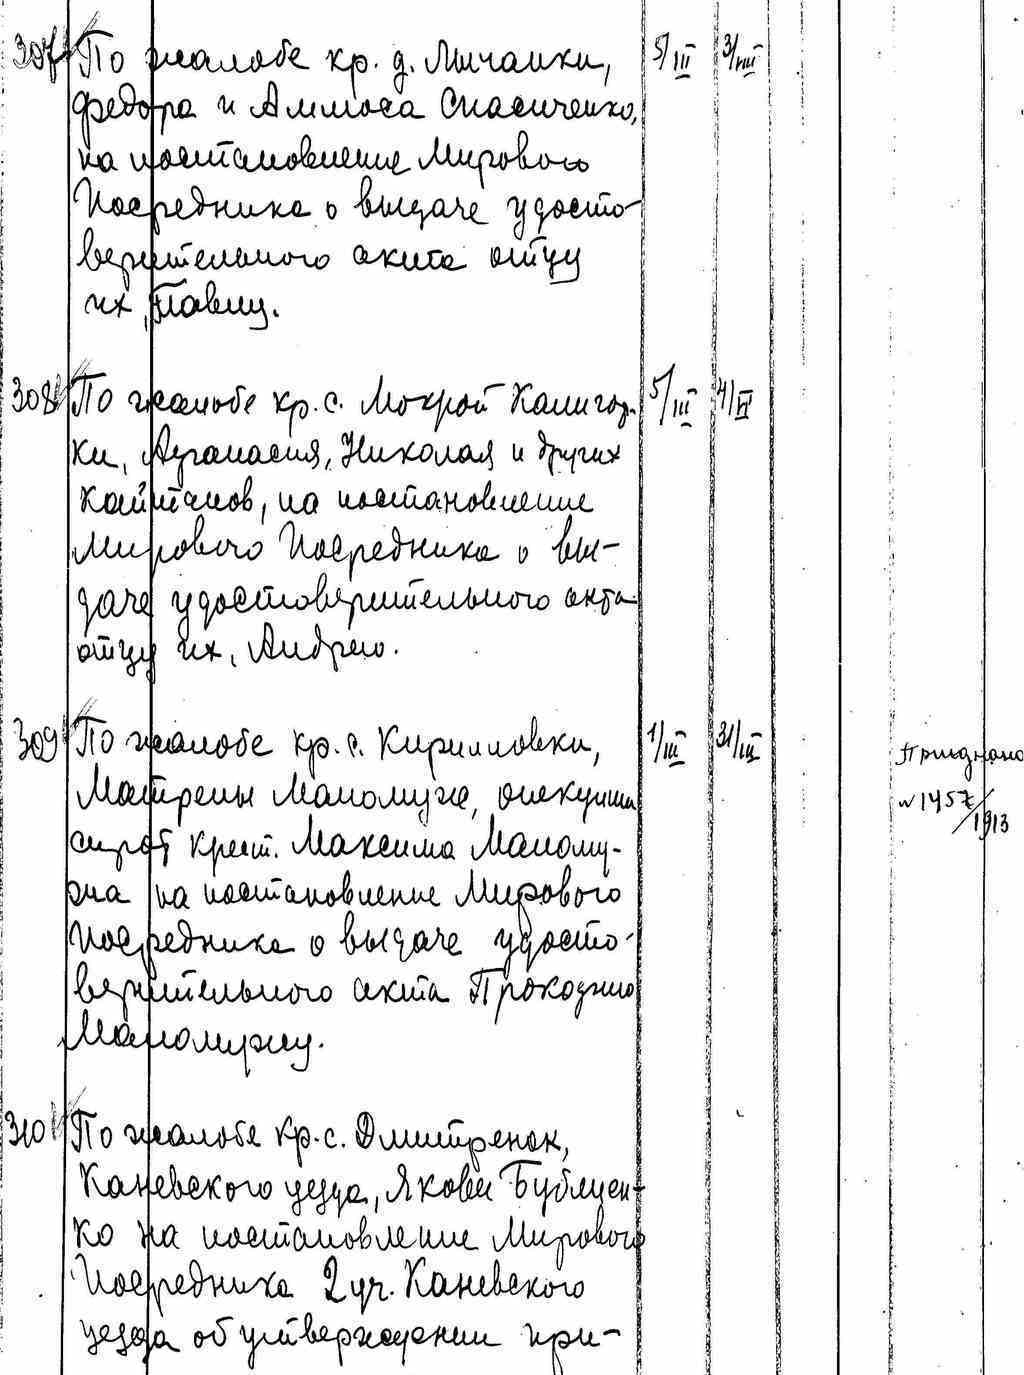 307 По жалобе кр. д. Личанки, 5/III 3/VIII
Федора и Аммоса Спасиченко,
на постановление Мирового
Посредника о выдаче удосто-
верительного акта отцу
их, Павлу.
308 По жалобе кр. с. Мокрой Калигор- 5/III 4/VI
ки, Афанасия, Николая и других
Кайтанов, на постановление
Мирового Посредника о вы-
даче удостоверительного акта
отцу их, Андрею.
309 По жалобе кр. с. Кирилловки, 1/III 31/III
Матрены Маломужа, опекунши
сирот крест. Максима Мало­му-
жа на постановление Мирового Приєднано
Посредника о выдаче удосто- № 1457/1913
верительного акта Прокофию
Маломужу.
310 По жалобе кр. с. Дмитренок,
Каневского уезда, Якова Бублиен-
ко на постановление Мирового
Посредника 2 уч. Каневского
уезда об утверждении при-